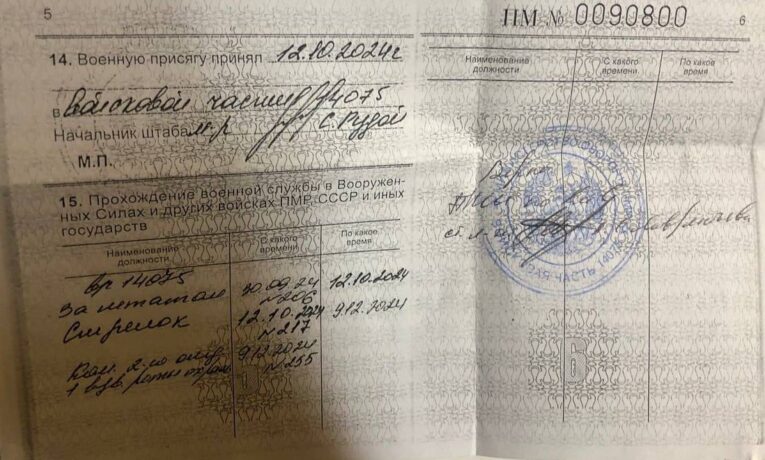 5
14. Военную присягу принял 12.10.2024г
в Войсковой части 14075
Начальник штаба м-р С. Рудой
М.П.
15. Прохождение военной службы в Вооружен-
ных Силах и других войсках ПМР, СССР и иных
государств
Наименование должности
С какого времени
По какое время
вр 14075
За штатом 30.09.24 12.10.2024
N 206
Стрелок 12.10.2024 9.12.2024
N 217
Ком. 2-го отд. 9.12.2024
1 взв. роты охраны N 255
5
ПМ № 0090800
6
Наименование должности
С какого времени
По какое время
Верно
ст. л-т
ВОЙСКОВАЯ ЧАСТЬ 14075
6